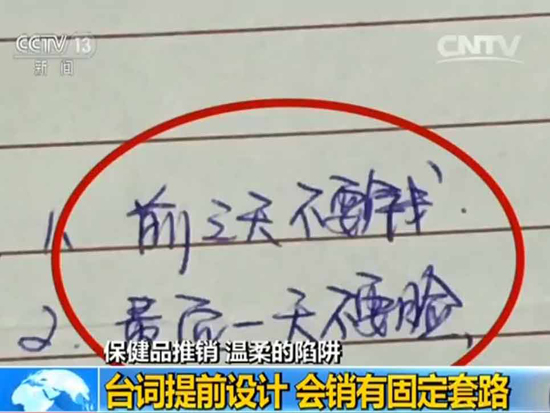 CCTV 13
新闻
CNTV
1、前三天不要钱.
2.最后一天不要脸,
保健品推销 温柔的陷阱
台词提前设计 会销有固定套路